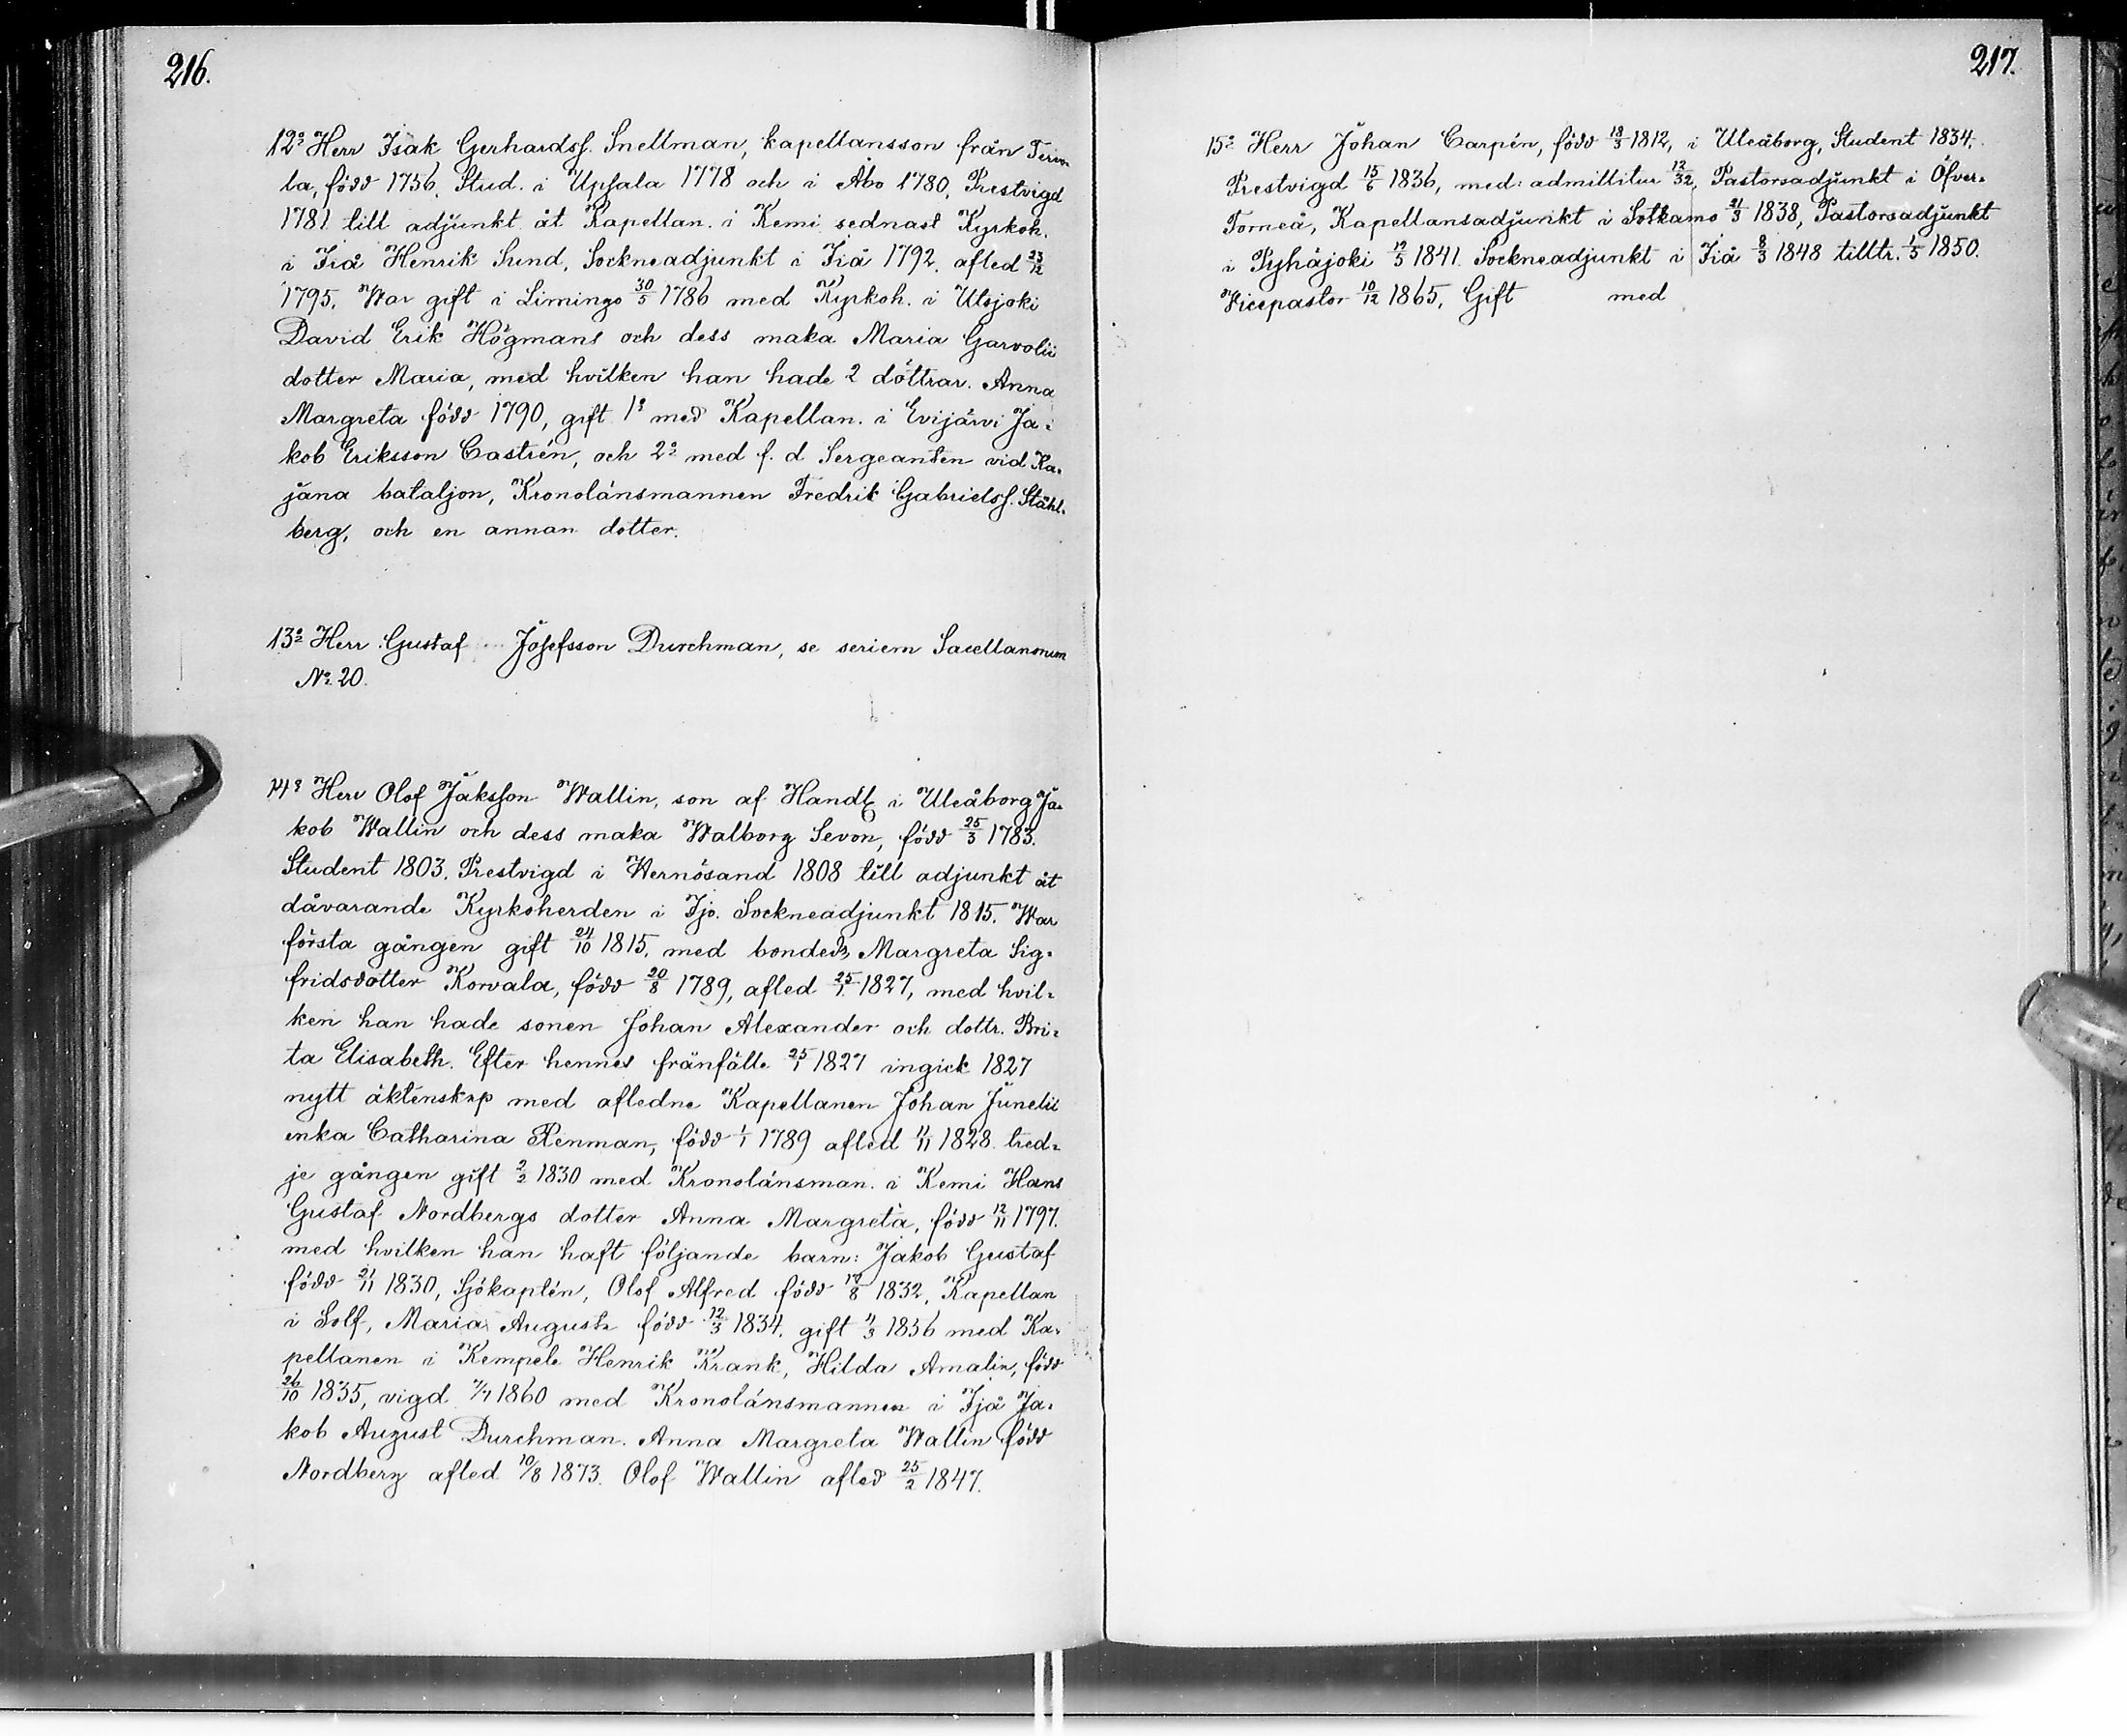 216.
12º Herr Isak Gerhardss. Snellman, kapellansson från Tervo
la, född 1756. Stud. i Upsala 1778 och i Åbo 1780. Prestvigd
1781 till adjunkt åt Kapellan. i Kemi sednast Kyrkoh.
i Iiå Henrik Sund, Sockneadjunkt i Iiå 1792. afled 23/12
1795. War gift i Limingo 30/5 1786 med Kyrkoh. i Utsjoki
David Erik Högmans och dess maka Maria Garvolii
dotter Maria, med hvilken han hade 2 döttrar. Anna
Margreta född 1790, gift 1º med Kapellan. i Evijärvi Ja=
kob Eriksson Castrén, och 2º med f. d Sergeanten vid Ka=
jana bataljon, Kronolänsmannen Fredrik Gabrielss. Ståhl=
berg, och en annan dotter.
13º Herr Gustaf Josefsson Durchman, se seriem Sacellanorum
Nº 20.
14º Herr Olof Jaksson Wallin, son af Handl i Uleåborg Ja=
kob Wallin och dess maka Walborg Sevon, född 25/3 1783.
Student 1803. Prestvigd i Hernösand 1808 till adjunkt åt
dåvarande Kyrkoherden i Ijo. Sockneadjunkt 1815. War
första gången gift 24/10 1815. med bonded. Margreta Sig=
fridsdotter Korvala, född 20/8 1789, afled 25/1 1827, med hvil=
ken han hade sonen Johan Alexander och dottr. Bri=
ta Elisabeth. Efter hennes frånfälle 25/1 1827 ingick 1827
nytt äktenskap med afledne Kapellanen Johan Junelii
enka Catharina Renman, född 1/1 1789 afled 11/11 1828. tred=
je gången gift 2/2 1830 med Kronolänsman. i Kemi Hans
Gustaf Nordbergs dotter Anna Margreta, född 12/11 1797.
med hvilken han haft följande barn: Jakob Gustaf
född 21/11 1830, Sjökaptén, Olof Alfred född 17/8 1832, Kapellan
i Solf, Maria Augusta född 12/3 1834. gift 4/3 1856 med Ka=
pellanen i Kempele Henrik Krank, Hilda Amalia, född
26/10 1835, vigd 7/7 1860 med Kronolänsmannen i Ijå Ja=
kob August Durchman. Anna Margreta Wallin född
Nordberg afled 10/8 1873. Olof Wallin afled 25/2 1847.
217.
15º Herr Johan Carpén, född 18/3 1812, i Uleåborg, Student 1834,
Prestvigd 15/6 1836, med: admittitur 12/32, Pastorsadjunkt i Öfver=
Torneå, Kapellansadjunkt i Sotkamo 21/3 1838, Pastorsadjunkt
i Pyhäjoki 12/5 1841. Sockneadjunkt i Iiå 8/3 1848 tilltr. 1/5 1850.
Vicepastor 10/12 1865. Gift med